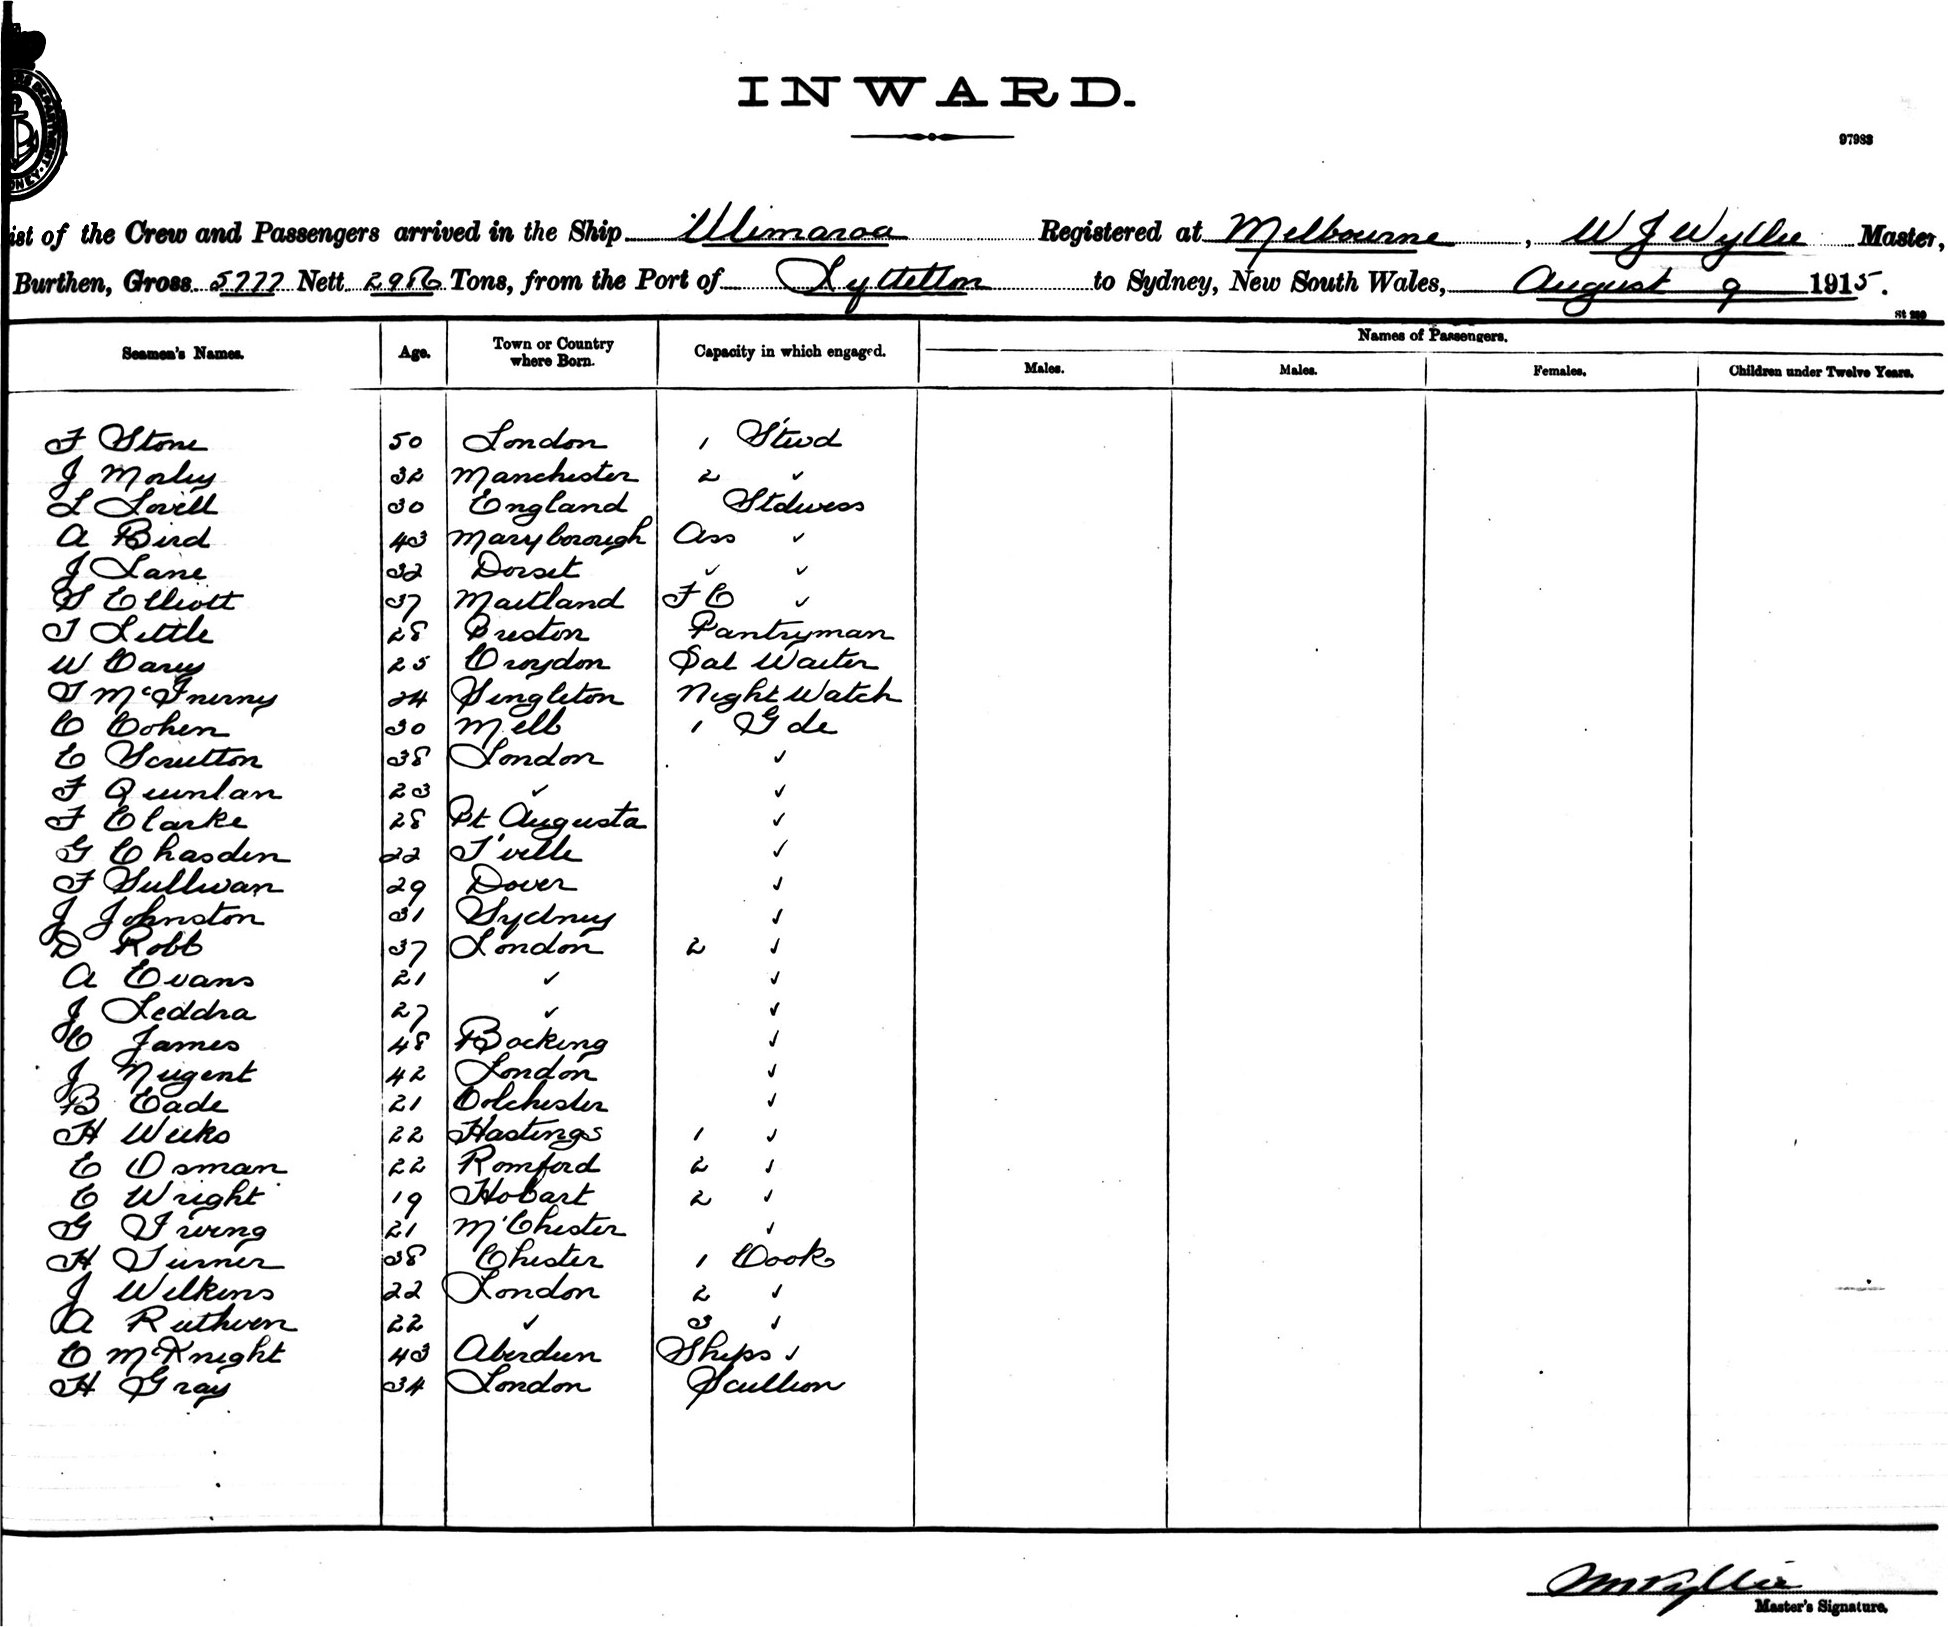 INWARD.
97983
ist of the Crew and Passengers arrived in the Ship Ulimaroa Registered at Melbourne, W J Wyllie Master,
Burthen, Gross 5777 Nett 2986 Tons, from the Port of Lyttelton to Sydney, New South Wales, August 9 1915.
Seamen's Names. Age. Town or Country where Born. Capacity in which engaged. Names of Passengers.
Males. Males. Females. Children under Twelve Years.
F Stone 50 London 1 Stwd
J Morley 32 Manchester 2 ✓
L Lovell 30 England Stdwess
A Bird 43 Maryborough Ass ✓
J Lane 32 Dorset ✓ ✓
S Elliott 37 Maitland F C ✓
T Little 28 Preston Pantryman
W Carey 25 Croydon Sal Waiter
T McInerny 24 Singleton Night Watch
C Cohen 30 Melb 1 G de
E Scrutton 38 London ✓
F Quinlan 23 ✓ ✓
F Clarke 28 Pt Augusta ✓
G Chasden 22 T'ville ✓
F Sullivan 29 Dover ✓
J Johnston 31 Sydney ✓
D Robb 37 London 2 ✓
A Evans 21 ✓ ✓
J Leddra 27 ✓ ✓
C James 48 Bocking ✓
J Nugent 42 London ✓
B Eade 21 Colchester ✓
H Weeks 22 Hastings 1 ✓
E Osman 22 Romford 2 ✓
C Wright 19 Hobart 2 ✓
G Irving 21 M'Chester ✓
H Turner 38 Chester 1 Cook
J Wilkins 22 London 2 ✓
A Ruthven 22 ✓ 3 ✓
C McKnight 43 Aberdeen Ships ✓
H Gray 34 London Scullion
Master's Signature.